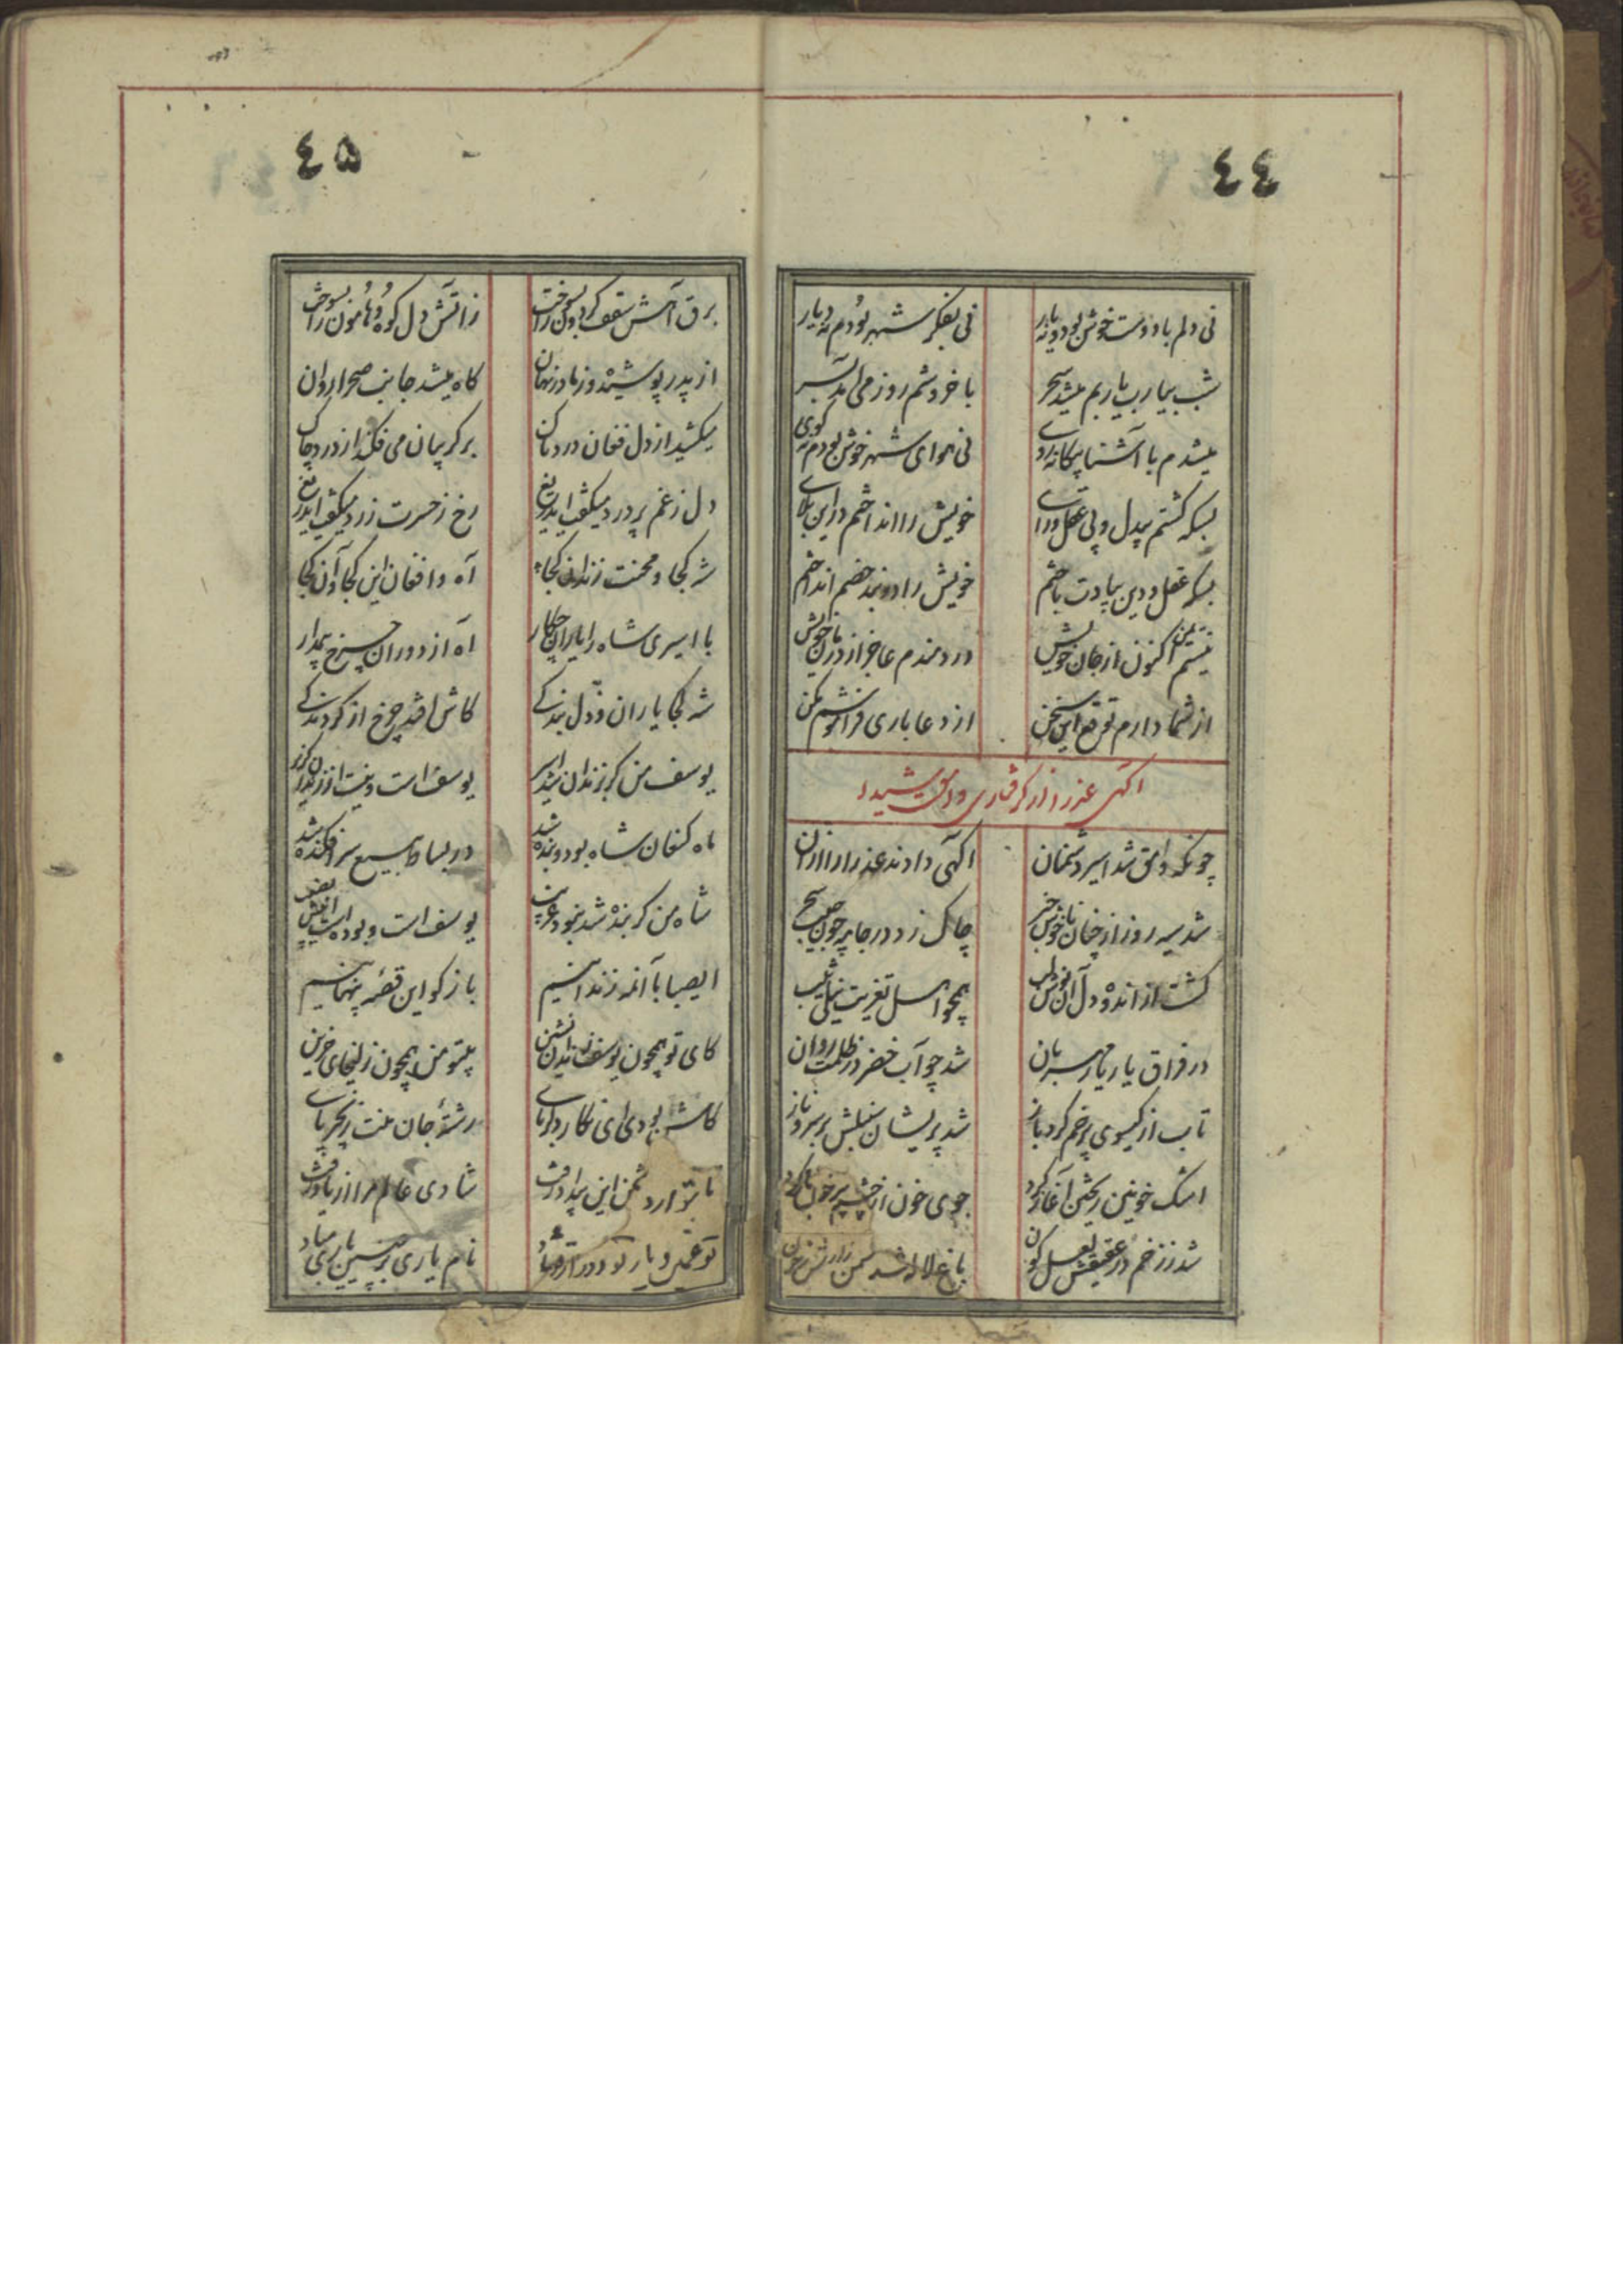 ٤٤
نی دلم با دوست خوش بود و نه یار نی بفکر شهر بودم نه دیار
شب بیارب یاربم میشد سحر با خروشم روز می آمد بسر
میشدم با آشنا بیگانه روی نی هوای شهر خوش بودم نه کوی
بسکه گشتم بیدل و بی عقل و رای خویش را انداختم در این بلای
بسکه عقل و دین بیادت باختم خویش را در بند خصم انداختم
نیستم ایمن اکنون از جان خویش دردمندم عاجز از درمان خویش
از شما دارم توقع این سخن از دعا باری فراموشم مکن
آگهی عذرا از گرفتاری وامق شیدا
چونکه وامق شد اسیر دشمنان آگهی دادند عذرا را از آن
شد سیه روز از چنان ناخوش خبر چاک زد در جامه چون جیب سحر
گشت از اندوه دل آن نوش لب همچو اهل تعزیت نیلی سلب
در فراق یار یار مهربان شد چو آب خضر در ظلمت روان
تاب از گیسوی پر خم کرد باز شد پریشان سنبلش بر سرو ناز
اشک خونین ریختن آغاز کرد جوی خون از چشم پر خون باز کرد
شد ز زخم در عقیقش لعل گون باغ لاله شد سمن زارش ز خون
٤٥
برق آهش سقف گردون را بسوخت ز آتش دل کوه و هامون را بسوخت
از پدر پوشیده وز مادر نهان گاه میشد جانب صحرا روان
میکشید از دل فغان دردناک بر گریبان می فکند از درد چاک
دل ز غم پر درد میگفت ای دریغ رخ ز حسرت زرد میگفت ای دریغ
شه کجا و محنت زندان کجا آه و افغان این کجا و آن کجا
با اسیری شاه را یاران چکار آه از دوران چرخ بیمدار
شه کجا یاران و ذل بندگی کاش افتد چرخ از گردندگی
یوسف من گر بزندان شد اسیر یوسف است و نیست از زندان گزیر
ماه کنعان شاه بود و بنده شد در بساط بیع سرافکنده شد
شاه من گر بنده شد نبود غریب یوسف است و بوده است اینش نصیب
ای صبا با آن مه زندانیم باز گو این قصه پنهانیم
کای تو همچون یوسف زندان نشین بیتو من همچون زلیخای حزین
کاش بودی ای نگار دلربای رشته جان منت زنجیر پای
تا بتو از دشمن این بیداد رفت شادی عالم مرا از یاد رفت
تو غمین و یار تو دور از تو شاد نام یاری بر چنین یاری مباد